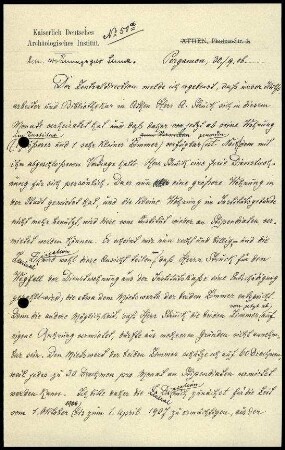 Kaiserlich Deutsches
Archäologisches Institut.
ATHEN, Phidiasstr. 1.
Pergamon, 30/9. 06.
Der Zentraldirection melde ich ergebenst, daß unser Hülfs-
arbeiter und Bibliothekar in Athen Herr A. Struck sich in diesem
Monat verheiratet hat und daß daher von jetzt ab seine Wohnung
im Institut
(1 größeres und 1 sehr kleines Zimmer) verfügbar ist. Nach dem mit
ihm abgeschlossenen Vertrage hatte Herr Struck eine freie Dienstwoh-
nung für sich persönlich. Da er nun eine größere Wohnung in
der Stadt gemietet hat und die kleine Wohnung im Institutsgebäude
nicht mehr benutzt, wird diese vom Institut wieder an Stipendiaten ver-
mietet werden können. Es scheint mir nun recht und billig und die
Zentral Direction wird diese Ansicht teilen, daß Herrn Struck für den
Wegfall der Dienstwohnung aus der Institutskasse eine Entschädigung
gezahlt wird, die etwa dem Mietwerthe der beiden Zimmer entspricht.
Denn die andere Möglichkeit, daß Herr Struck die beiden Zimmer auf
eigene Rechnung vermietet, dürfte aus mehreren Gründen nicht annehm-
bar sein. Den Mietwerth der beiden Zimmer schätze ich auf 60 Drachmen,
weil jedes zu 30 Drachmen pro Monat an Stipendiaten vermietet
werden kann. Ich bitte daher die Zentral Direction, zunächst für die Zeit
vom 1. Oktober 1906 bis zum 1. April 1907 zu ermächtigen, an den